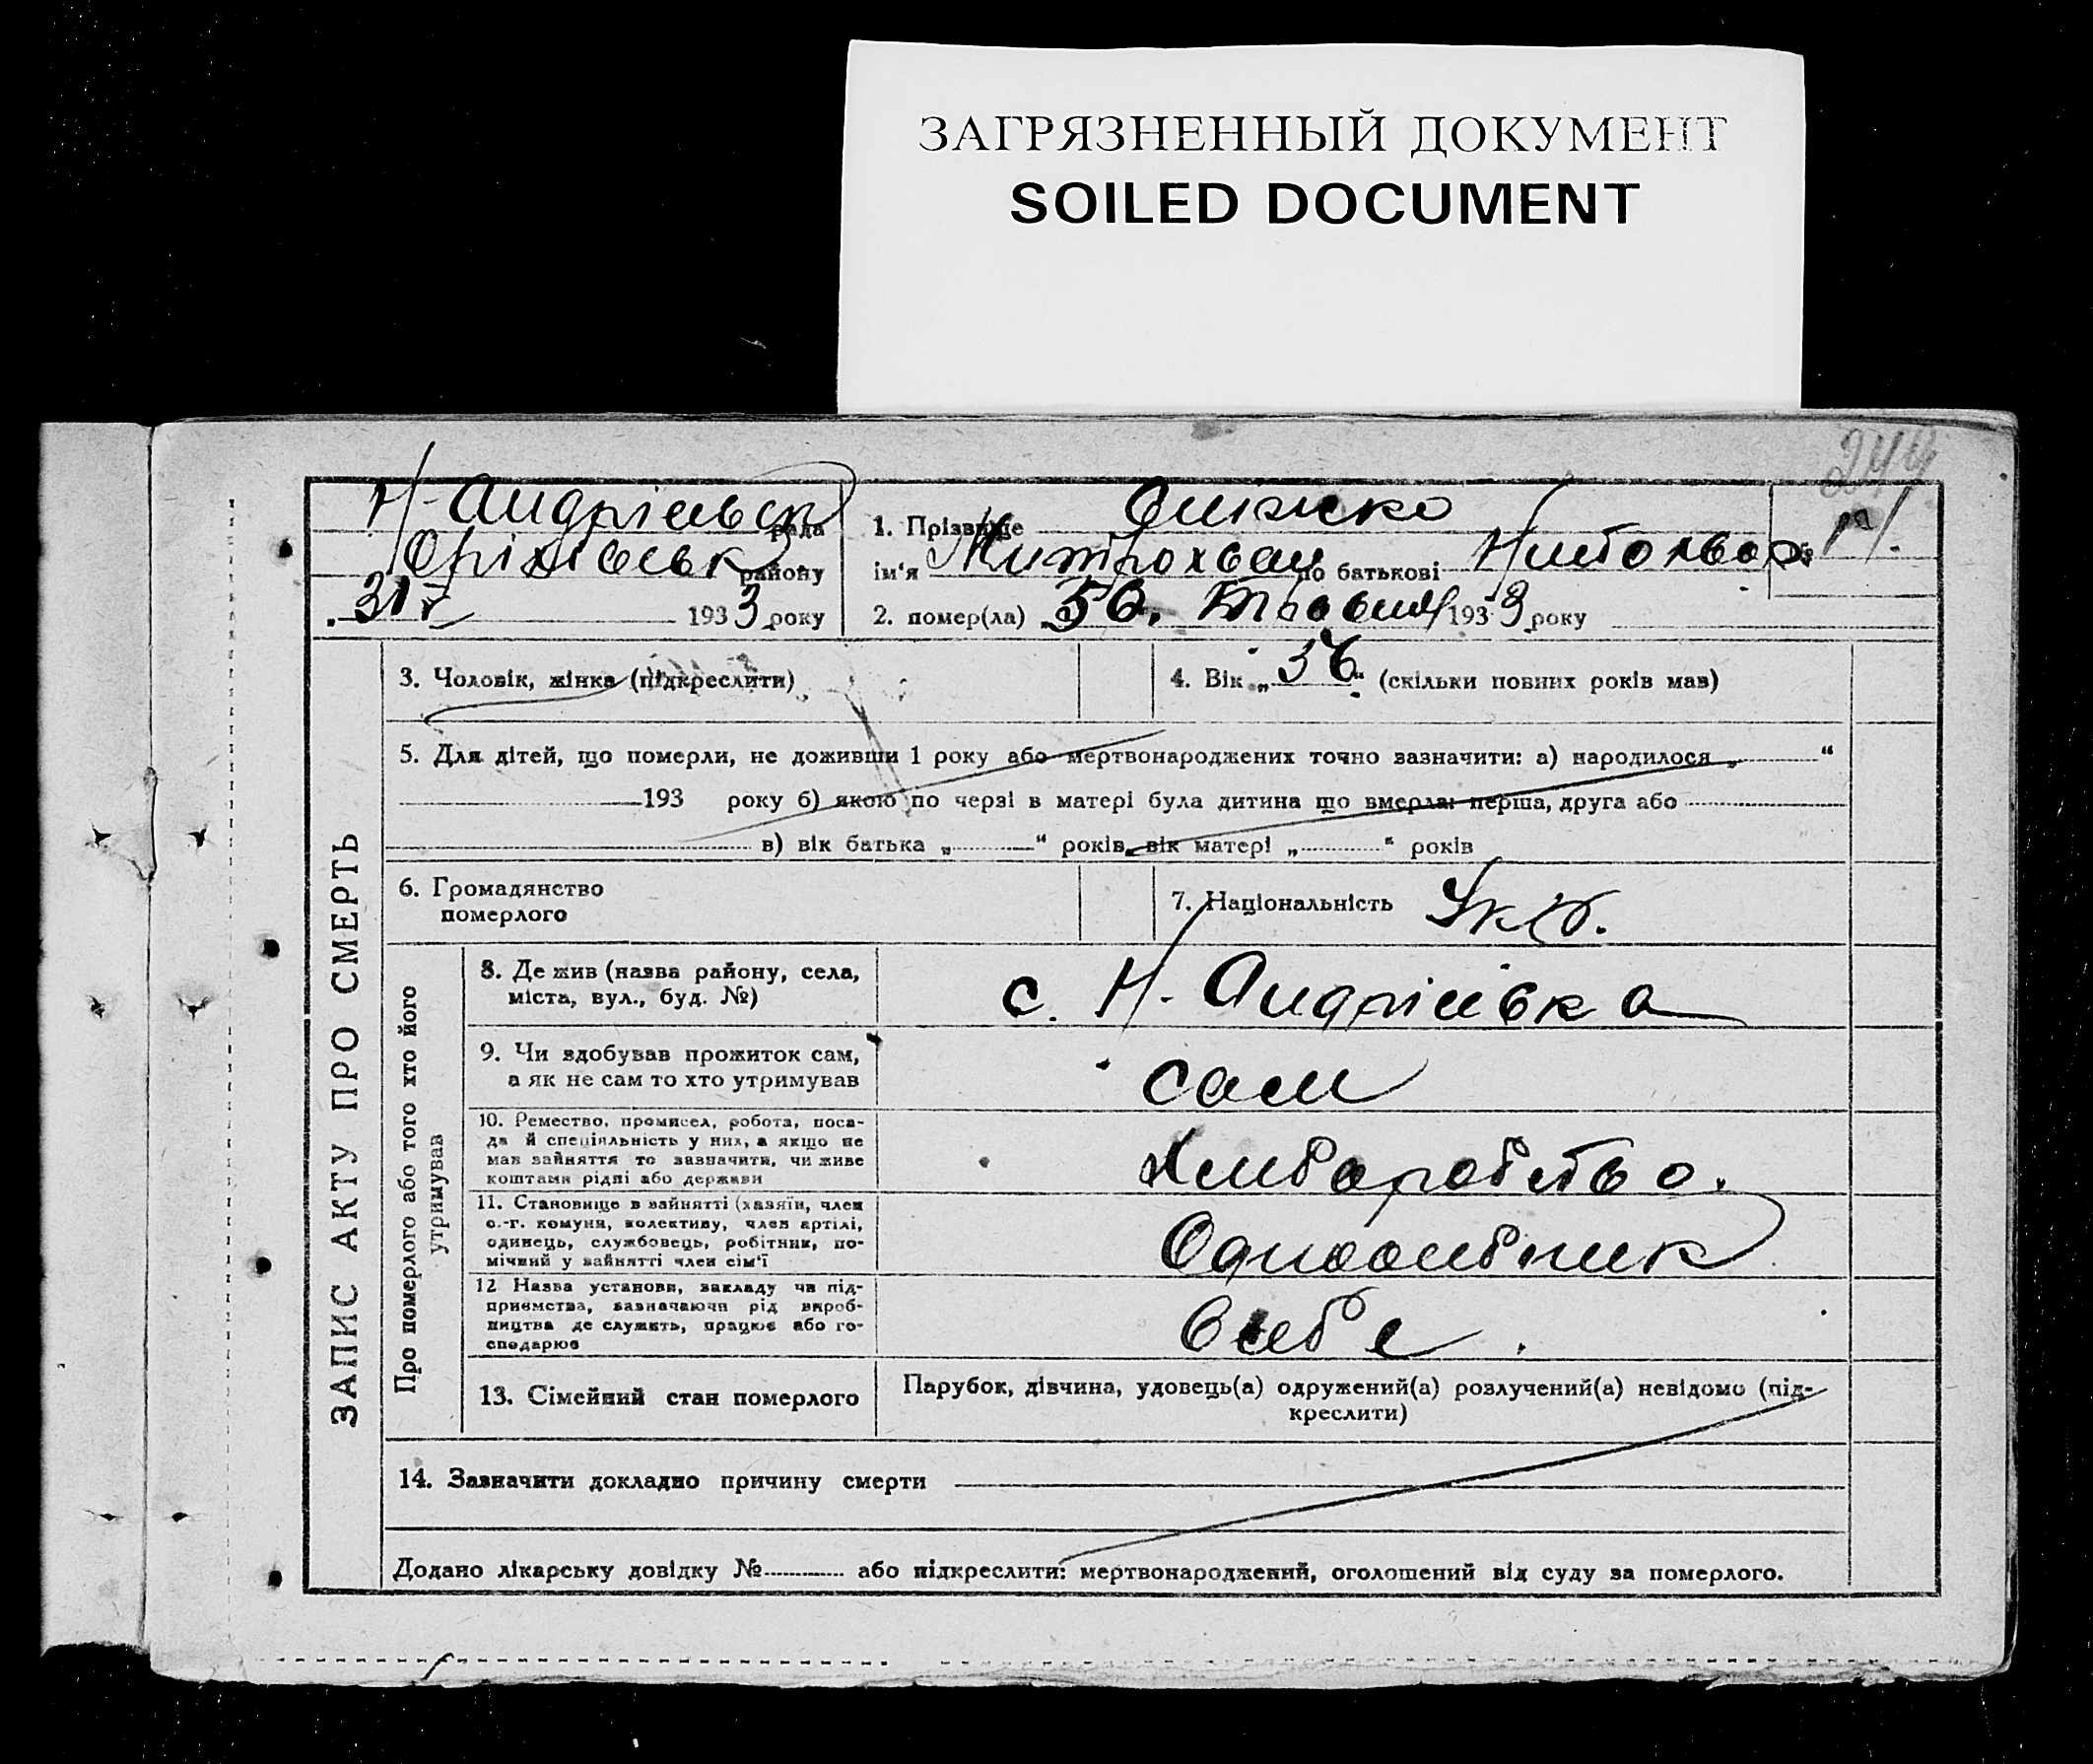 ЗАГРЯЗНЕННЫЙ ДОКУМЕНТ
SOILED DOCUMENT
Н-Андріївськ рада
Оріхівськ району
31 V 1933 року
1. Прізвище
ім'я Митрохван по батькові
2. помер(ла) 30. Травня 1933 року
ЗАПИС АКТУ ПРО СМЕРТЬ
3. Чоловік, жінка (підкреслити)
4. Вік „36“ (скільки повних років мав)
5. Для дітей, що померли, не доживши 1 року або мертвонароджених точно зазначити: а) народилося „ “
193 року б) якою по черзі в матері була дитина що вмерла: перша, друга або
в) вік батька „ “ років, вік матері „ “ років
6. Громадянство
померлого
7. Національність Укр.
Про померлого або того хто його
утримував
8. Де жив (назва району, села,
міста, вул., буд. №)
с. Н-Андріївка
9. Чи здобував прожиток сам,
а як не сам то хто утримував
сам
10. Ремество, промисел, робота, поса-
да й спеціяльність у них, а якщо не
мав зайняття то зазначити, чи живе
коштами рідні або держави
Хліборобство.
11. Становище в зайнятті (хазяїн, член
с.-г. комуни, колективу, член артілі,
одинець, службовець, робітник, по-
мічний у зайнятті член сім'ї
Одноосібник
12 Назва установи, закладу чи під-
приємства, зазначаючи рід вироб-
ництва де служить, працює або го-
сподарює
в себе.
13. Сімейний стан померлого
Парубок, дівчина, удовець(а) одружений(а) розлучений(а) невідомо (під-
креслити)
14. Зазначити докладно причину смерти
Додано лікарську довідку № або підкреслити: мертвонароджений, оголошений від суду за померлого.